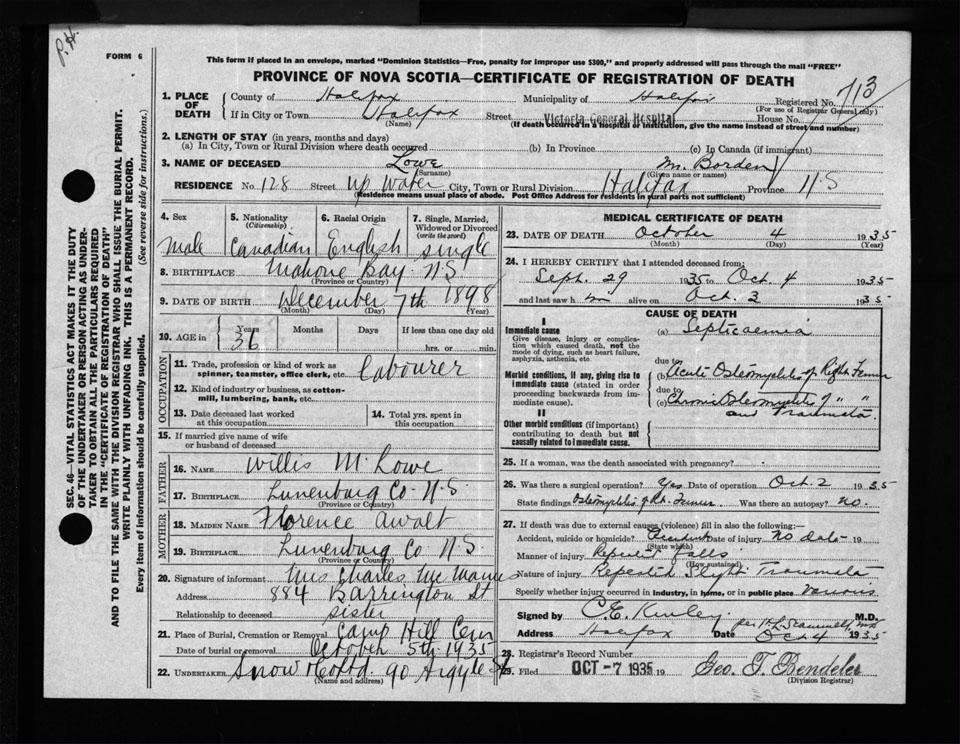 P.H.
FORM 6
This form if placed in an envelope, marked "Dominion Statistics—Free, penalty for improper use $300," and properly addressed will pass through the mail "FREE"
PROVINCE OF NOVA SCOTIA—CERTIFICATE OF REGISTRATION OF DEATH
1. PLACE OF DEATH County of Halifax Municipality of Halifax Registered No. 713
(For use of Registrar General only)
If in City or Town Halifax Street Victoria General Hospital House No.
(Name) (If death occurred in a hospital or institution, give the name instead of street and number)
2. LENGTH OF STAY (in years, months and days)
(a) In City, Town or Rural Division where death occurred (b) In Province (c) In Canada (if immigrant)
3. NAME OF DECEASED Lowe Borden
(Surname) (Given name or names)
RESIDENCE No. 128 Street Up Water City, Town or Rural Division Halifax Province N S
(Residence means usual place of abode. Post Office Address for residents in rural parts not sufficient)
4. Sex 5. Nationality 6. Racial Origin 7. Single, Married, Widowed or Divorced
(Citizenship) (write the word)
Male Canadian English single
8. BIRTHPLACE Mahone Bay N S
(Province or Country)
9. DATE OF BIRTH December 7th 1898
(Month) (Day) (Year)
10. AGE in Years Months Days If less than one day old
36 hrs. or min.
OCCUPATION
11. Trade, profession or kind of work as spinner, teamster, office clerk, etc. Labourer
12. Kind of industry or business, as cotton-mill, lumbering, bank, etc.
13. Date deceased last worked at this occupation 14. Total yrs. spent in this occupation
15. If married give name of wife or husband of deceased
FATHER
16. NAME Willis M. Lowe
17. BIRTHPLACE Lunenburg Co N.S.
(Province or Country)
MOTHER
18. MAIDEN NAME Florence Awalt
19. BIRTHPLACE Lunenburg Co N.S.
(Province or Country)
20. Signature of informant Mrs Charles McManus
Address 884 Barrington St
Relationship to deceased sister
21. Place of Burial, Cremation or Removal Camp Hill Cem
Date of burial or removal October 5th 1935
22. UNDERTAKER Snow & Co Ltd. 90 Argyle St
(Name and address)
MEDICAL CERTIFICATE OF DEATH
23. DATE OF DEATH October 4 1935
(Month) (Day) (Year)
24. I HEREBY CERTIFY that I attended deceased from:
Sept. 29 1935 to Oct. 4 1935
and last saw h m alive on Oct. 3 1935
CAUSE OF DEATH
I
Immediate cause (a) Septicaemia
Give disease, injury or complication which caused death, not the mode of dying, such as heart failure, asphyxia, asthenia, etc
due to
Morbid conditions, if any, giving rise to immediate cause (stated in order proceeding backwards from immediate cause). (b) Acute Osteomyelitis of Right Femur
due to
(c) Chronic Osteomyelitis of " "
and Traumata
II
Other morbid conditions (if important) contributing to death but not causally related to immediate cause.
25. If a woman, was the death associated with pregnancy?
26. Was there a surgical operation? Yes Date of operation Oct. 2 1935
State findings Osteomyelitis of Rt. Femur. Was there an autopsy? No.
27. If death was due to external causes (violence) fill in also the following:—
Accident, suicide or homicide? Accident Date of injury No date 19
(State which)
Manner of injury Repeated falls
(How sustained)
Nature of injury Repeated Slight Traumata
Specify whether injury occurred in industry, in home, or in public place Various
Signed by C. E. Kinley M.D.
Address Halifax Date Oct 4 1935
28. Registrar's Record Number
29. Filed OCT -7 1935 19 Geo. T. Bendeler
(Division Registrar)
SEC. 46—VITAL STATISTICS ACT MAKES IT THE DUTY OF THE UNDERTAKER OR PERSON ACTING AS UNDERTAKER TO OBTAIN ALL THE PARTICULARS REQUIRED IN THE "CERTIFICATE OF REGISTRATION OF DEATH" AND TO FILE THE SAME WITH THE DIVISION REGISTRAR WHO SHALL ISSUE THE BURIAL PERMIT.
WRITE PLAINLY WITH UNFADING INK. THIS IS A PERMANENT RECORD.
Every item of information should be carefully supplied. (See reverse side for instructions.)